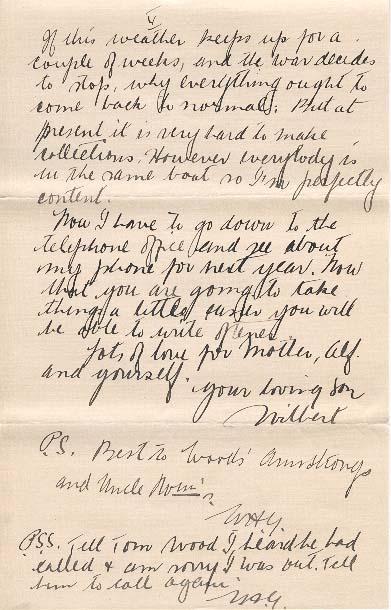 V
If this weather keeps up for a
couple of weeks, and the war decides
to stop, why everything ought to
come back to normals. But at
present it is very hard to make
collections. However everybody is
in the same boat so I'm perfectly
content.
Now I have to go down to the
telephone office and see about
my phone for next year. Now
that you are going to take
things a little easier you will
be able to write oftener.
Lots of love for Mother, Alf.
and yourself.
Your loving son
Wilbert
P.S. Best to Woods' Armstrongs
and Uncle
P.S.S. Tell Tom Wood I heard he had
called & am sorry I was out. Tell
him to call again.